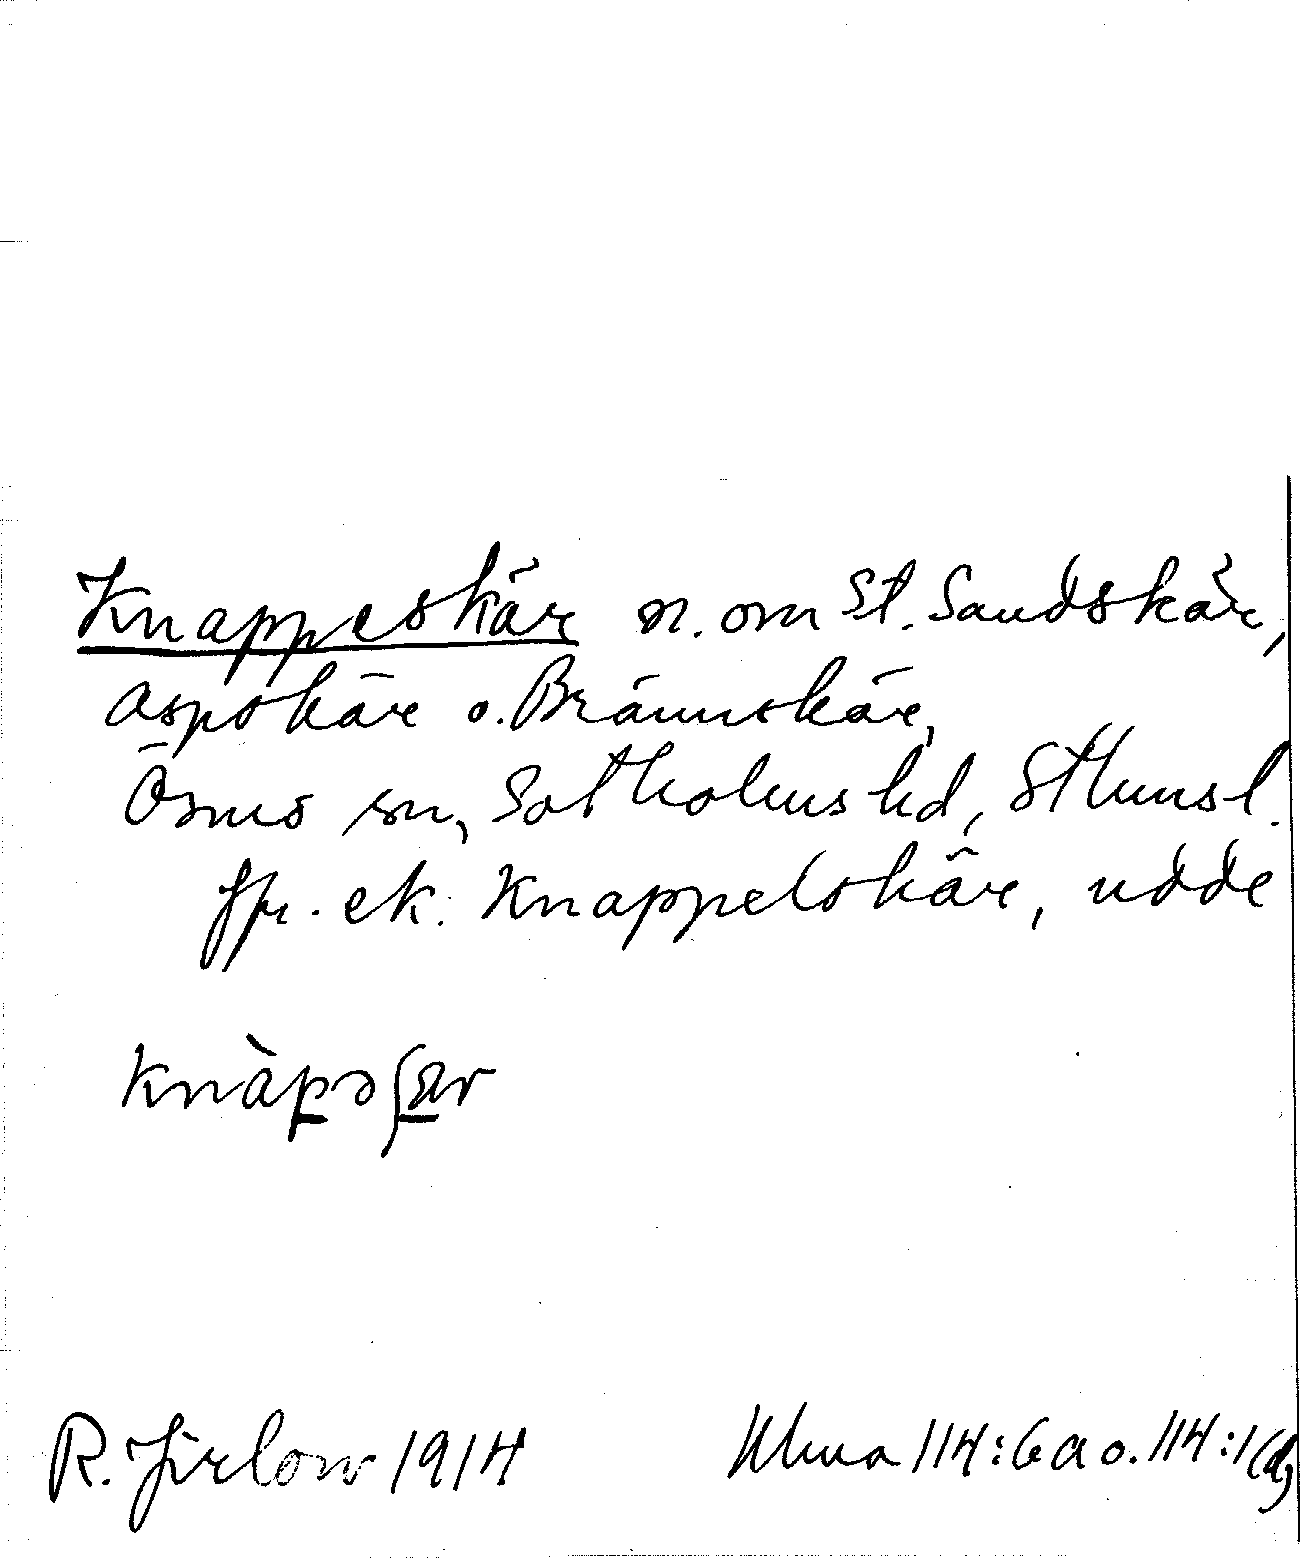 Knappeskär n. om St. Sandskär,
Aspskär o. Brännskär,
Ösmo sn, Sotholms hd, Sthmsl.
Jfr. ek. Knappelskär, udde
knàpəʃær
R. Jirlow 1914
Ulma 114:6a o. 114:1(d)